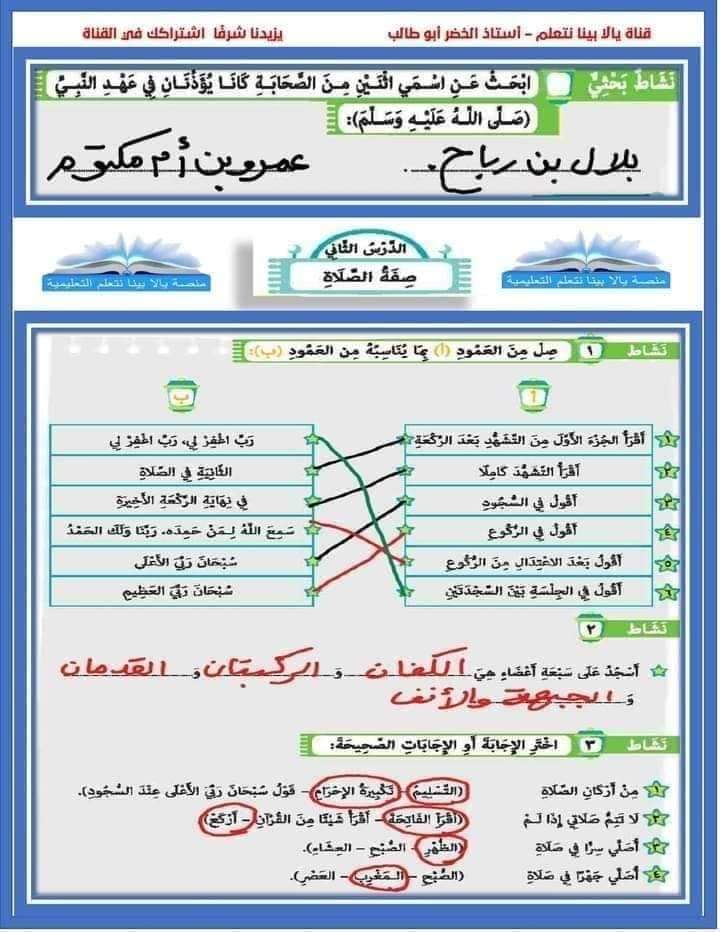 قناة يالا بينا نتعلم - أستاذ الخضر أبو طالب يزيدنا شرفًا اشتراكك في القناة
نَشَاطٌ بَحْثِيٌّ ابْحَثْ عَنِ اسْمَيِ اثْنَيْنِ مِنَ الصَّحَابَةِ كَانَا يُؤَذِّنَانِ فِي عَهْدِ النَّبِيِّ
(صَلَّى اللَّهُ عَلَيْهِ وَسَلَّمَ):
بلال بن رباح. عمرو بن أم مكتوم
الدَّرْسُ الثَّانِي
صِفَةُ الصَّلَاةِ
منصة يالا بينا نتعلم التعليمية
منصة يالا بينا نتعلم التعليمية
نَشَاط ١ صِلْ مِنَ العَمُودِ (أ) بِمَا يُنَاسِبُهُ مِنَ العَمُودِ (ب):
أ ب
١ أَقْرَأُ الجُزْءَ الأَوَّلَ مِنَ التَّشَهُّدِ بَعْدَ الرَّكْعَةِ رَبِّ اغْفِرْ لِي، رَبِّ اغْفِرْ لِي
٢ أَقْرَأُ التَّشَهُّدَ كَامِلًا الثَّانِيَةِ فِي الصَّلَاةِ
٣ أَقُولُ فِي السُّجُودِ فِي نِهَايَةِ الرَّكْعَةِ الأَخِيرَةِ
٤ أَقُولُ فِي الرُّكُوعِ سَمِعَ اللَّهُ لِمَنْ حَمِدَه، رَبَّنَا وَلَكَ الحَمْدُ
٥ أَقُولُ بَعْدَ الاعْتِدَالِ مِنَ الرُّكُوعِ سُبْحَانَ رَبِّيَ الأَعْلَى
٦ أَقُولُ فِي الجِلْسَةِ بَيْنَ السَّجْدَتَيْنِ سُبْحَانَ رَبِّيَ العَظِيمِ
نَشَاط ٢
أَسْجُدُ عَلَى سَبْعَةِ أَعْضَاءٍ هِيَ الكفان و الركبتان و القدمان
و الجبهة والأنف
نَشَاط ٣ اخْتَرِ الإِجَابَةَ أَوِ الإِجَابَاتِ الصَّحِيحَةَ:
١ مِنْ أَرْكَانِ الصَّلَاةِ (التَّسْلِيمُ - تَكْبِيرَةُ الإِحْرَامِ - قَوْلُ سُبْحَانَ رَبِّيَ الأَعْلَى عِنْدَ السُّجُودِ).
٢ لَا تَتِمُّ صَلَاتِي إِذَا لَمْ (أَقْرَأِ الفَاتِحَةَ - أَقْرَأْ شَيْئًا مِنَ القُرْآنِ - أَرْكَعْ)
٣ أُصَلِّي سِرًّا فِي صَلَاةِ (الظُّهْرِ - الصُّبْحِ - العِشَاءِ).
٤ أُصَلِّي جَهْرًا فِي صَلَاةِ (الصُّبْحِ - المَغْرِبِ - العَصْرِ).